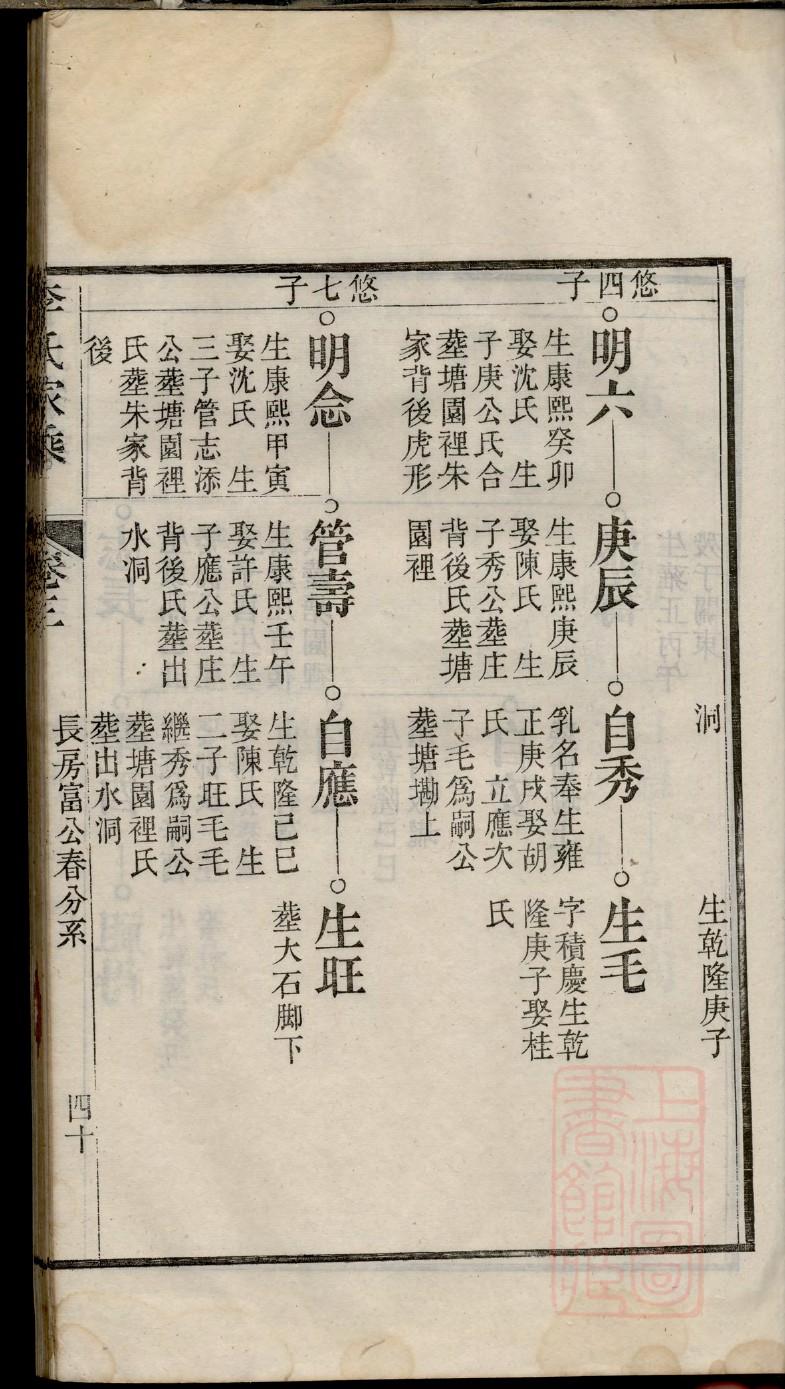 洞
生乾隆庚子
悠四子
明六
生康熙癸卯
娶沈氏 生
子庚公氏合
塟塘園裡朱
家背後虎形
庚辰
生康熙庚辰
娶陳氏 生
子秀公塟庄
背後氏塟塘
園裡
自秀
乳名奉生雍
正庚戌娶胡
氏 立應次
子毛爲嗣公
塟塘墈上
生毛
字積慶生乾
隆庚子娶桂
氏
悠七子
明念
生康熙甲寅
娶沈氏 生
三子管志添
公塟塘園裡
氏塟朱家背
後
管壽
生康熙壬午
娶許氏 生
子應公塟庄
背後氏塟出
水洞
自應
生乾隆己巳
娶陳氏 生
二子旺毛毛
繼秀爲嗣公
塟塘園裡氏
塟出水洞
生旺
塟大石脚下
李氏家乘 卷三
長房富公春分系
四十
上海圖書館藏